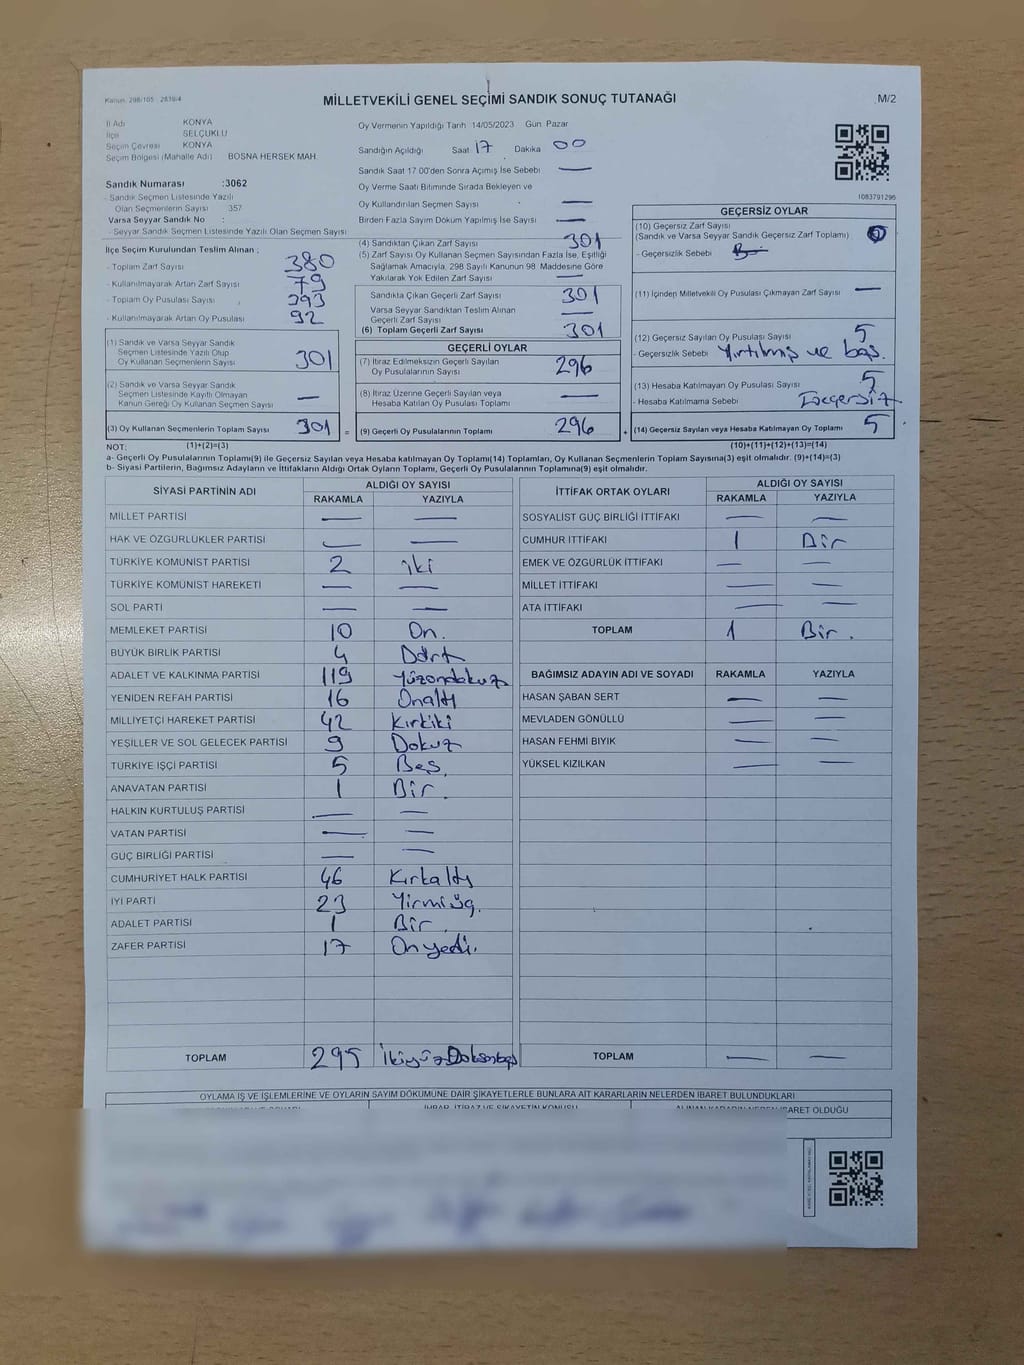 Kanun: 298/105 - 2839/4
MİLLETVEKİLİ GENEL SEÇİMİ SANDIK SONUÇ TUTANAĞI
M/2
İl Adı KONYA
İlçe SELÇUKLU
Seçim Çevresi KONYA
Seçim Bölgesi (Mahalle Adı) BOSNA HERSEK MAH.
Sandık Numarası :3062
- Sandık Seçmen Listesinde Yazılı
Olan Seçmenlerin Sayısı 357
Varsa Seyyar Sandık No :
- Seyyar Sandık Seçmen Listesinde Yazılı Olan Seçmen Sayısı
İlçe Seçim Kurulundan Teslim Alınan ;
- Toplam Zarf Sayısı 380
- Kullanılmayarak Artan Zarf Sayısı 79
- Toplam Oy Pusulası Sayısı 393
- Kullanılmayarak Artan Oy Pusulası 92
(1) Sandık ve Varsa Seyyar Sandık
Seçmen Listesinde Yazılı Olup
Oy Kullanan Seçmenlerin Sayısı 301
(2) Sandık ve Varsa Seyyar Sandık
Seçmen Listesinde Kayıtlı Olmayan
Kanun Gereği Oy Kullanan Seçmen Sayısı —
(3) Oy Kullanan Seçmenlerin Toplam Sayısı 301 =
Oy Vermenin Yapıldığı Tarih 14/05/2023 Gün: Pazar
Sandığın Açıldığı Saat 17 Dakika 00
Sandık Saat 17.00'den Sonra Açılmış İse Sebebi —
Oy Verme Saati Bitiminde Sırada Bekleyen ve
Oy Kullandırılan Seçmen Sayısı —
Birden Fazla Sayım Döküm Yapılmış İse Sayısı —
(4) Sandıktan Çıkan Zarf Sayısı 301
(5) Zarf Sayısı Oy Kullanan Seçmen Sayısından Fazla İse, Eşitliği
Sağlamak Amacıyla, 298 Sayılı Kanunun 98. Maddesine Göre
Yakılarak Yok Edilen Zarf Sayısı —
Sandıkta Çıkan Geçerli Zarf Sayısı 301
Varsa Seyyar Sandıktan Teslim Alınan
Geçerli Zarf Sayısı —
(6) Toplam Geçerli Zarf Sayısı 301
GEÇERLİ OYLAR
(7) İtiraz Edilmeksizin Geçerli Sayılan
Oy Pusulalarının Sayısı 296
(8) İtiraz Üzerine Geçerli Sayılan veya
Hesaba Katılan Oy Pusulası Toplamı —
(9) Geçerli Oy Pusulalarının Toplamı 296 +
1083791296
GEÇERSİZ OYLAR
(10) Geçersiz Zarf Sayısı
(Sandık ve Varsa Seyyar Sandık Geçersiz Zarf Toplamı)
- Geçersizlik Sebebi
(11) İçinden Milletvekili Oy Pusulası Çıkmayan Zarf Sayısı —
(12) Geçersiz Sayılan Oy Pusulası Sayısı 5
- Geçersizlik Sebebi Yırtılmış ve boş.
(13) Hesaba Katılmayan Oy Pusulası Sayısı 5
- Hesaba Katılmama Sebebi
(14) Geçersiz Sayılan veya Hesaba Katılmayan Oy Toplamı 5
NOT: (1)+(2)=(3) (10)+(11)+(12)+(13)=(14)
a- Geçerli Oy Pusulalarının Toplamı(9) ile Geçersiz Sayılan veya Hesaba katılmayan Oy Toplamı(14) Toplamları, Oy Kullanan Seçmenlerin Toplam Sayısına(3) eşit olmalıdır. (9)+(14)=(3)
b- Siyasi Partilerin, Bağımsız Adayların ve İttifakların Aldığı Ortak Oyların Toplamı, Geçerli Oy Pusulalarının Toplamına(9) eşit olmalıdır.
SİYASİ PARTİNİN ADI ALDIĞI OY SAYISI
RAKAMLA YAZIYLA
MİLLET PARTİSİ — —
HAK VE ÖZGÜRLÜKLER PARTİSİ — —
TÜRKİYE KOMÜNİST PARTİSİ 2 iki
TÜRKİYE KOMÜNİST HAREKETİ — —
SOL PARTİ — —
MEMLEKET PARTİSİ 10 On.
BÜYÜK BİRLİK PARTİSİ 4 Dört
ADALET VE KALKINMA PARTİSİ 119 Yüzondokuz
YENİDEN REFAH PARTİSİ 16 Onaltı
MİLLİYETÇİ HAREKET PARTİSİ 42 Kırkiki
YEŞİLLER VE SOL GELECEK PARTİSİ 9 Dokuz
TÜRKİYE İŞÇİ PARTİSİ 5 Beş.
ANAVATAN PARTİSİ 1 Bir.
HALKIN KURTULUŞ PARTİSİ — —
VATAN PARTİSİ — —
GÜÇ BİRLİĞİ PARTİSİ — —
CUMHURİYET HALK PARTİSİ 46 Kırkaltı
İYİ PARTİ 23 Yirmiüç.
ADALET PARTİSİ 1 Bir.
ZAFER PARTİSİ 17 Onyedi.
TOPLAM 295 İkiyüzDoksanbeş
İTTİFAK ORTAK OYLARI ALDIĞI OY SAYISI
RAKAMLA YAZIYLA
SOSYALİST GÜÇ BİRLİĞİ İTTİFAKI — —
CUMHUR İTTİFAKI 1 Bir
EMEK VE ÖZGÜRLÜK İTTİFAKI — —
MİLLET İTTİFAKI — —
ATA İTTİFAKI — —
TOPLAM 1 Bir.
BAĞIMSIZ ADAYIN ADI VE SOYADI RAKAMLA YAZIYLA
HASAN ŞABAN SERT — —
MEVLADEN GÖNÜLLÜ — —
HASAN FEHMİ BIYIK — —
YÜKSEL KIZILKAN — —
TOPLAM — —
OYLAMA İŞ VE İŞLEMLERİNE VE OYLARIN SAYIM DÖKÜMÜNE DAİR ŞİKAYETLERLE BUNLARA AİT KARARLARIN NELERDEN İBARET BULUNDUKLARI
İHBAR, İTİRAZ VE ŞİKAYETİN KONUSU ALINAN KARARIN NEDEN İBARET OLDUĞU